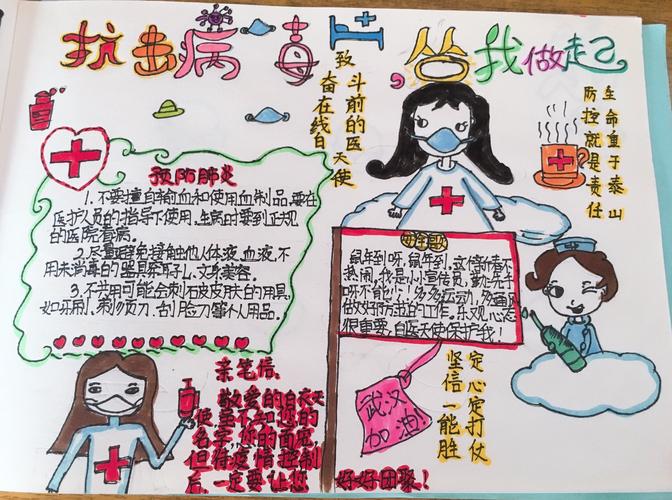 抗击病毒，从我做起
致
奋斗在前线的白衣天使
生命重于泰山
防控就是责任
预防肺炎
1.不要擅自输血和使用血制品,要在
医护人员的指导下使用,生病时要到正规
的医院看病。
2.尽量避免接触他人体液、血液,不
用未消毒的器具穿耳孔、文身美容。
3.不共用可能会刺破皮肤的用具,
如牙刷、剃须刀、刮脸刀等个人用品。
鼠年到呀,鼠年到,这个新春不
热闹,我是小小宣传员,勤洗手
呀不能少,多多运动,多通风
做好防击的工作。乐观心态
很重要,白医天使保护我!
武汉
加油!
坚定信心
一定能打胜仗
亲笔信:
敬爱的白衣天
使,虽不知您的
名字,您的面庞,
但待疫情控制
后,一定要让您
好好团聚!